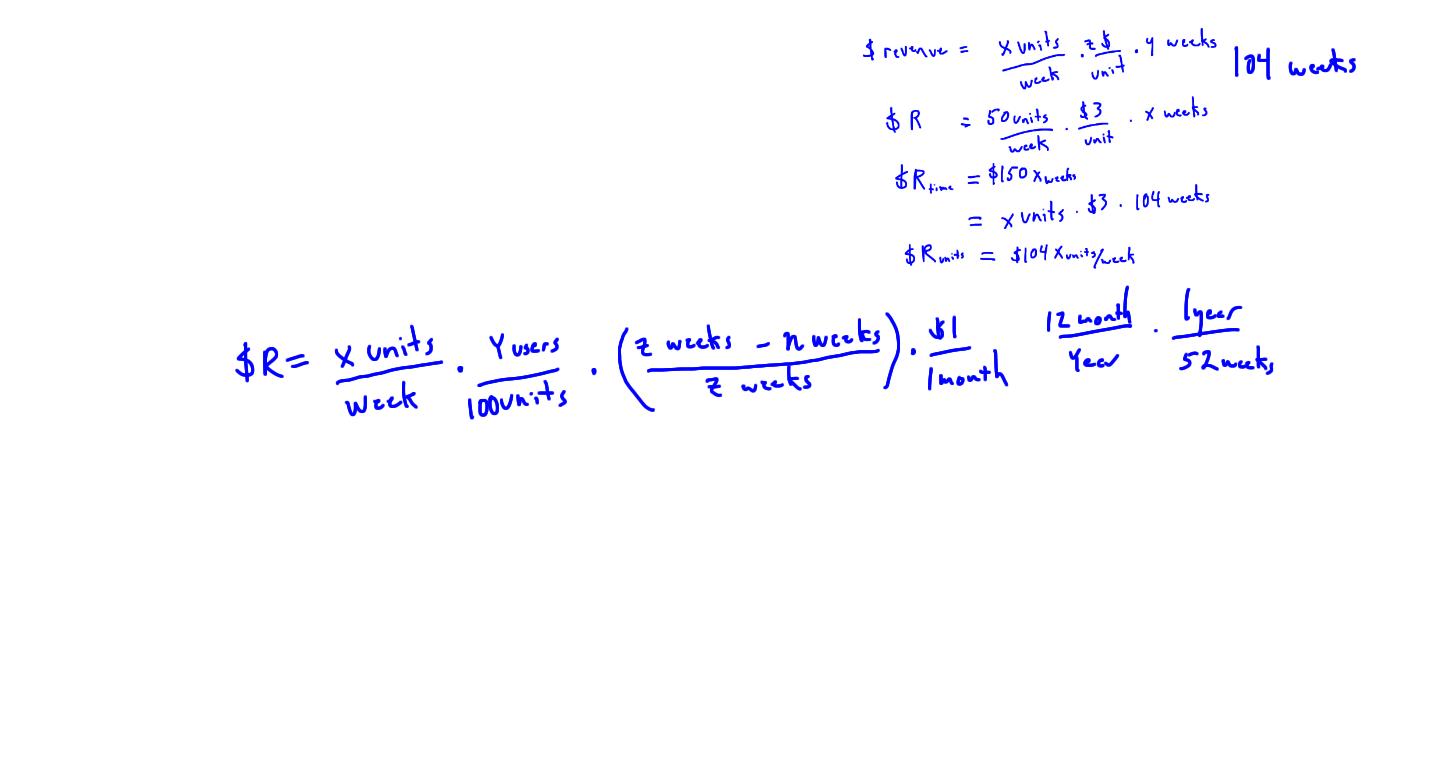 $ revenue = x units/week · z $/unit · y weeks 104 weeks
$ R = 50 units/week · $3/unit · x weeks
$R time = $150 x weeks
= x units · $3 · 104 weeks
$R units = $104 x units/week
$R = x units/week · Y users/100 units · (z weeks - n weeks/z weeks) · $1/1 month 12 month/Year · 1 year/52 weeks